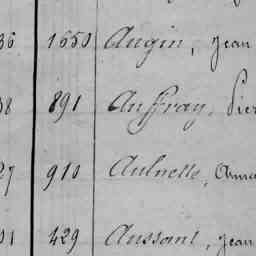 36 1650 Augin, Jean
38 891 Auffray, Pier
27 910 Aulnette, Anna
01 429 Aussant, Jean